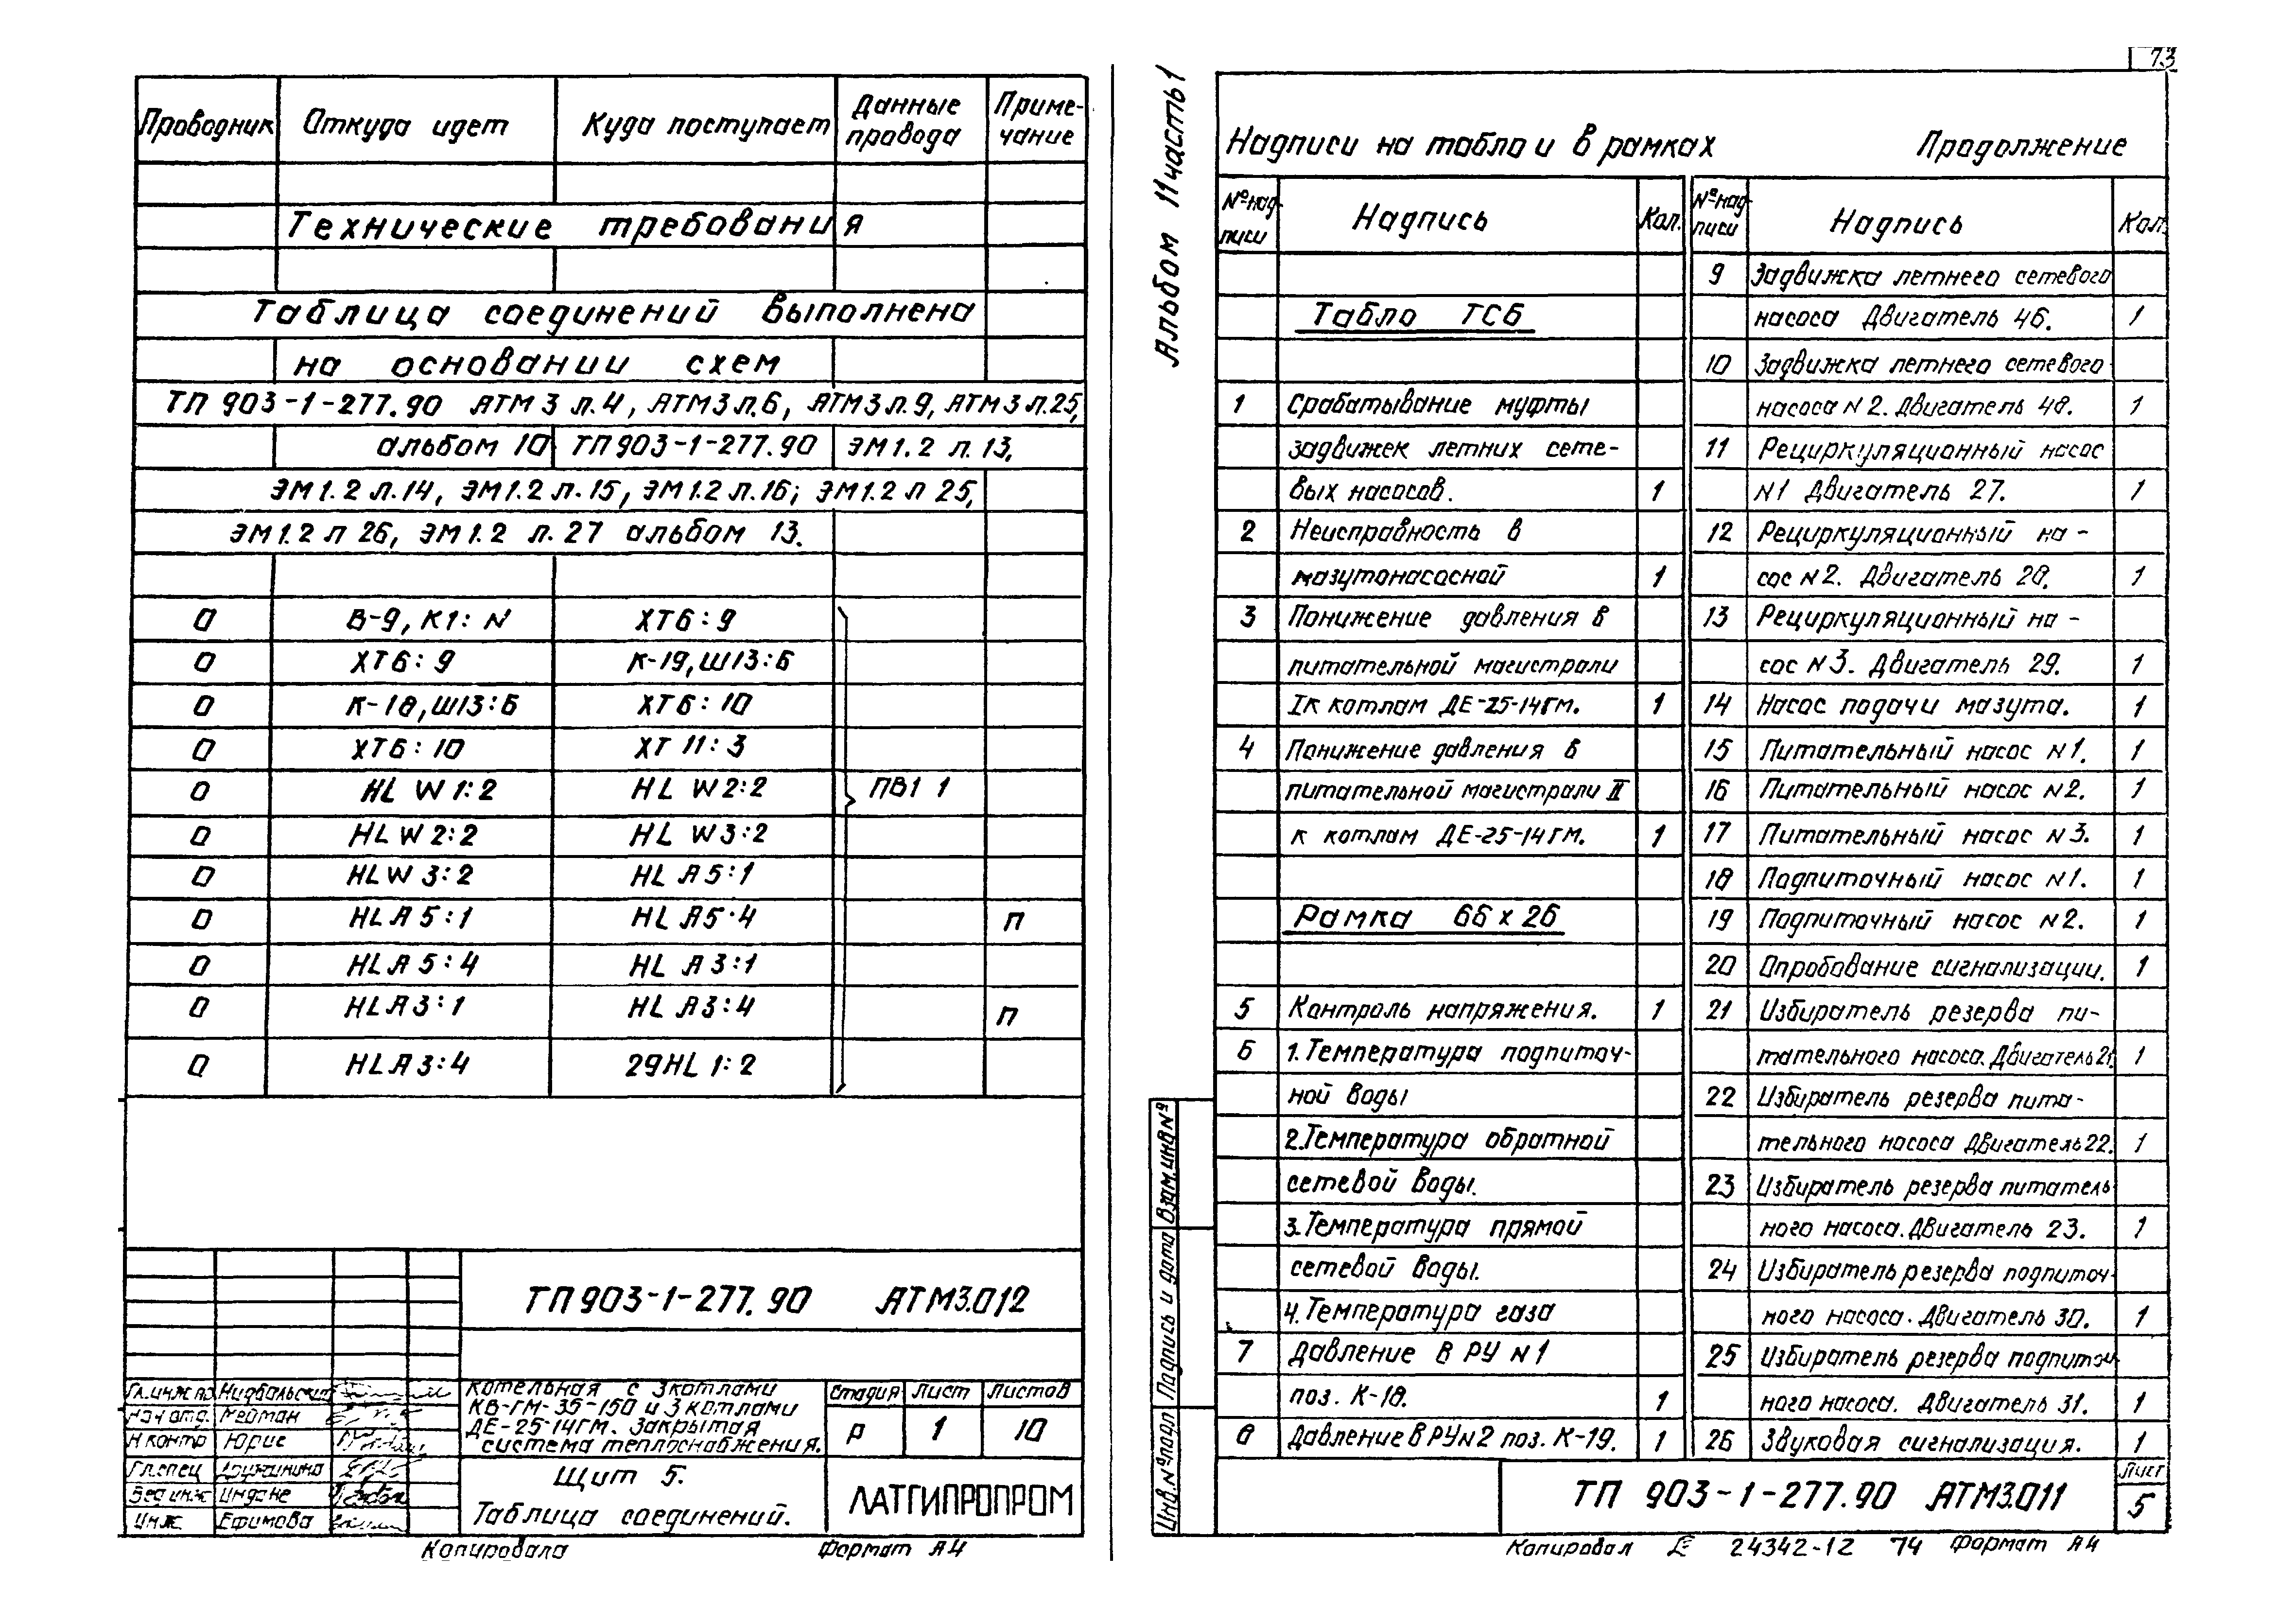 73
Проводник Откуда идет Куда поступает Данные провода Приме-чание
Технические требования
Таблица соединений выполнена
на основании схем
ТП 903-1-277.90 АТМ 3 л.4, АТМ3 л.6, АТМ3 л.9, АТМ 3 л.25,
альбом 10 ТП903-1-277.90 ЭМ1.2 л.13,
ЭМ1.2 л.14, ЭМ1.2 л.15, ЭМ1.2 л.16; ЭМ1.2 л 25,
ЭМ1.2 л 26, ЭМ1.2 л.27 альбом 13.
0 В-9, К1: N ХТ6:9
0 ХТ6: 9 К-19, Ш13:Б
0 К-18, Ш13:Б ХТ6: 10
0 ХТ6: 10 ХТ 11: 3
0 HL W1:2 HL W2:2 ПВ1 1
0 HL W2:2 HL W3:2
0 HLW 3:2 HL A5:1
0 HLA 5:1 HL A5·4 П
0 HLA 5:4 HL A3:1
0 HLA3:1 HL A3:4 П
0 HLA3:4 29HL 1:2
ТП903-1-277.90 АТМ3.012
Гл.инж.пр.
Нач отд. Рейман
Н контр Юрис
Гл.спец Дружинина
Вед инж Индане
Инж Ефимова
Котельная с 3 котлами
КВ-ГМ-35-150 и 3 котлами
ДЕ-25-14ГМ. Закрытая
система теплоснабжения.
Стадия Лист Листов
Р 1 10
Щит 5.
Таблица соединений.
ЛАТГИПРОПРОМ
Копировала Формат А4
Альбом 11 часть 1
Надписи на табло и в рамках Продолжение
№ над-писи Надпись Кол. № над-писи Надпись Кол.
Табло ТСБ
1 Срабатывание муфты
задвижек летних сете-
вых насосов. 1
2 Неисправность в
мазутонасосной 1
3 Понижение давления в
питательной магистрали
I к котлам ДЕ-25-14ГМ. 1
4 Понижение давления в
питательной магистрали II
к котлам ДЕ-25-14ГМ. 1
Рамка 66 х 26
5 Контроль напряжения. 1
6 1.Температура подпиточ-
ной воды
2.Температура обратной
сетевой воды.
3.Температура прямой
сетевой воды.
4.Температура газа
7 Давление в РУ N1
поз. К-18. 1
8 Давление в РУ N2 поз. К-19. 1
9 Задвижка летнего сетевого
насоса Двигатель 46. 1
10 Задвижка летнего сетевого
насоса N2. Двигатель 48. 1
11 Рециркуляционный насос
N1 Двигатель 27. 1
12 Рециркуляционный на-
сос N2. Двигатель 28. 1
13 Рециркуляционный на-
сос N3. Двигатель 29. 1
14 Насос подачи мазута. 1
15 Питательный насос N1. 1
16 Питательный насос N2. 1
17 Питательный насос N3. 1
18 Подпиточный насос N1. 1
19 Подпиточный насос N2. 1
20 Опробование сигнализации. 1
21 Избиратель резерва пи-
тательного насоса. Двигатель 21. 1
22 Избиратель резерва пита-
тельного насоса Двигатель 22. 1
23 Избиратель резерва питатель-
ного насоса. Двигатель 23. 1
24 Избиратель резерва подпиточ-
ного насоса. Двигатель 30. 1
25 Избиратель резерва подпиточ-
ного насоса. Двигатель 31. 1
26 Звуковая сигнализация. 1
Инв.№ подл Подпись и дата Взам.инв№
ТП 903-1-277.90 АТМ3.011
Лист
5
Копировал 24342-12 74 Формат А4